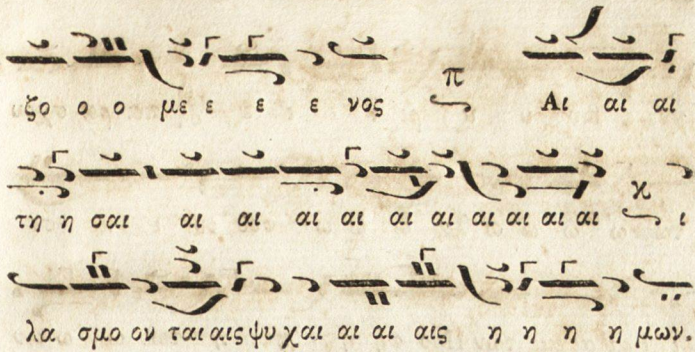 ζο ο ο με ε ε ε νος π Αι αι αι
τη η σαι αι αι αι αι αι αι αι αι αι αι ϰ ι
λα σμο ον ται αις ψυ χαι αι αι αις η η η η μων.